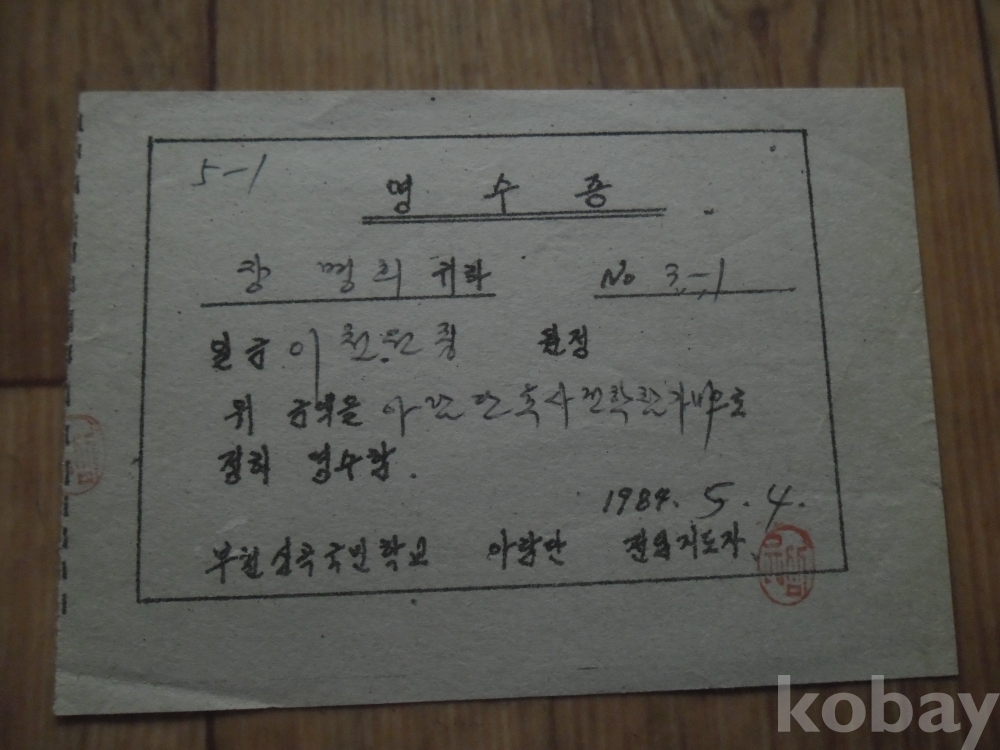 5-1
영 수 증
장 명희 귀하 No 3-1
일금 이천원정 원정
위 금액을 아람단 견학참가비으로
정히 영수함.
1984. 5. 4.
부천심곡국민학교 아람단 전임지도자
kobay